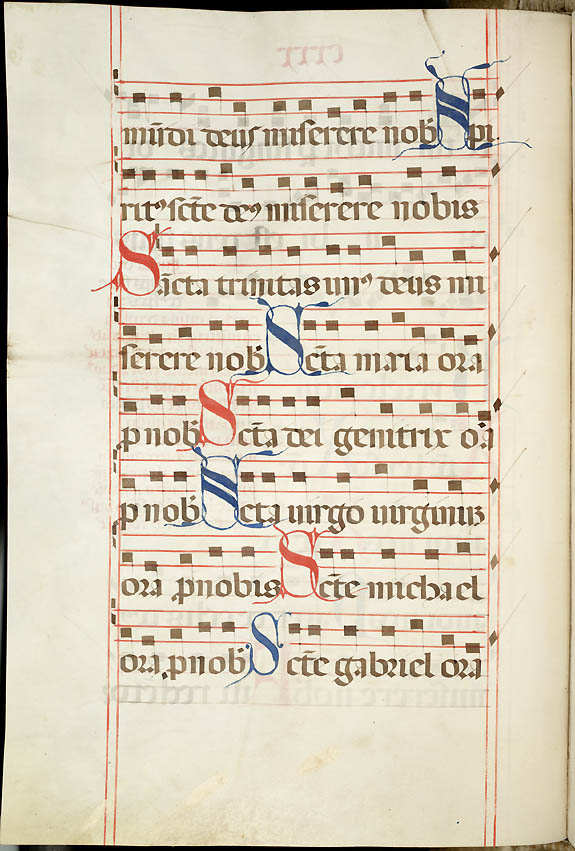 mūdi deus miserere nob̄ Spi
ritꝰ scīe deꝰ miserere nobis
Sācta trinitas unꝰ deus mi
serere nob̄ Scīa maria ora
ꝓ nob̄ Scīa dei genitrix ora
ꝓ nob̄ Scīa uirgo uirginuꝫ
ora ꝓ nobis Scīe michael
ora ꝓ nob̄ Scīe gabriel ora